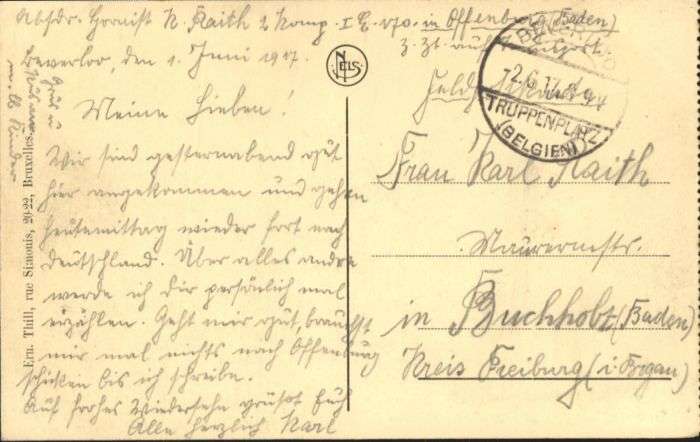 Absdr. Hornist K. Raith 2 Komp. I E. 170. in Offenburg (Baden)
z. Zt. auf
Beverloo, den 1. Juni 1917.
Meine Lieben!
Wir sind gesternabend gut
hier angekommen und gehen
heutemittag wieder fort nach
Deutschland. Über alles andre
werde ich Dir persönlich mal
erzählen. Geht mir gut, brauchst
mir mal nichts nach Offenburg
schicken bis ich schreibe.
Auf frohes Wiedersehn grüßt Euch
Alle herzlich Karl
Gruß u
Kuß
Kinder
Ern. Thill, rue Simonis, 20-22, Bruxelles.
NELS
BEVERLOO
2.6.17. 8-9 V
TRUPPENPLATZ
(BELGIEN)
Frau Karl Raith
Maurermstr.
in Buchholz (Baden)
Kreis Freiburg (i. Brgau)